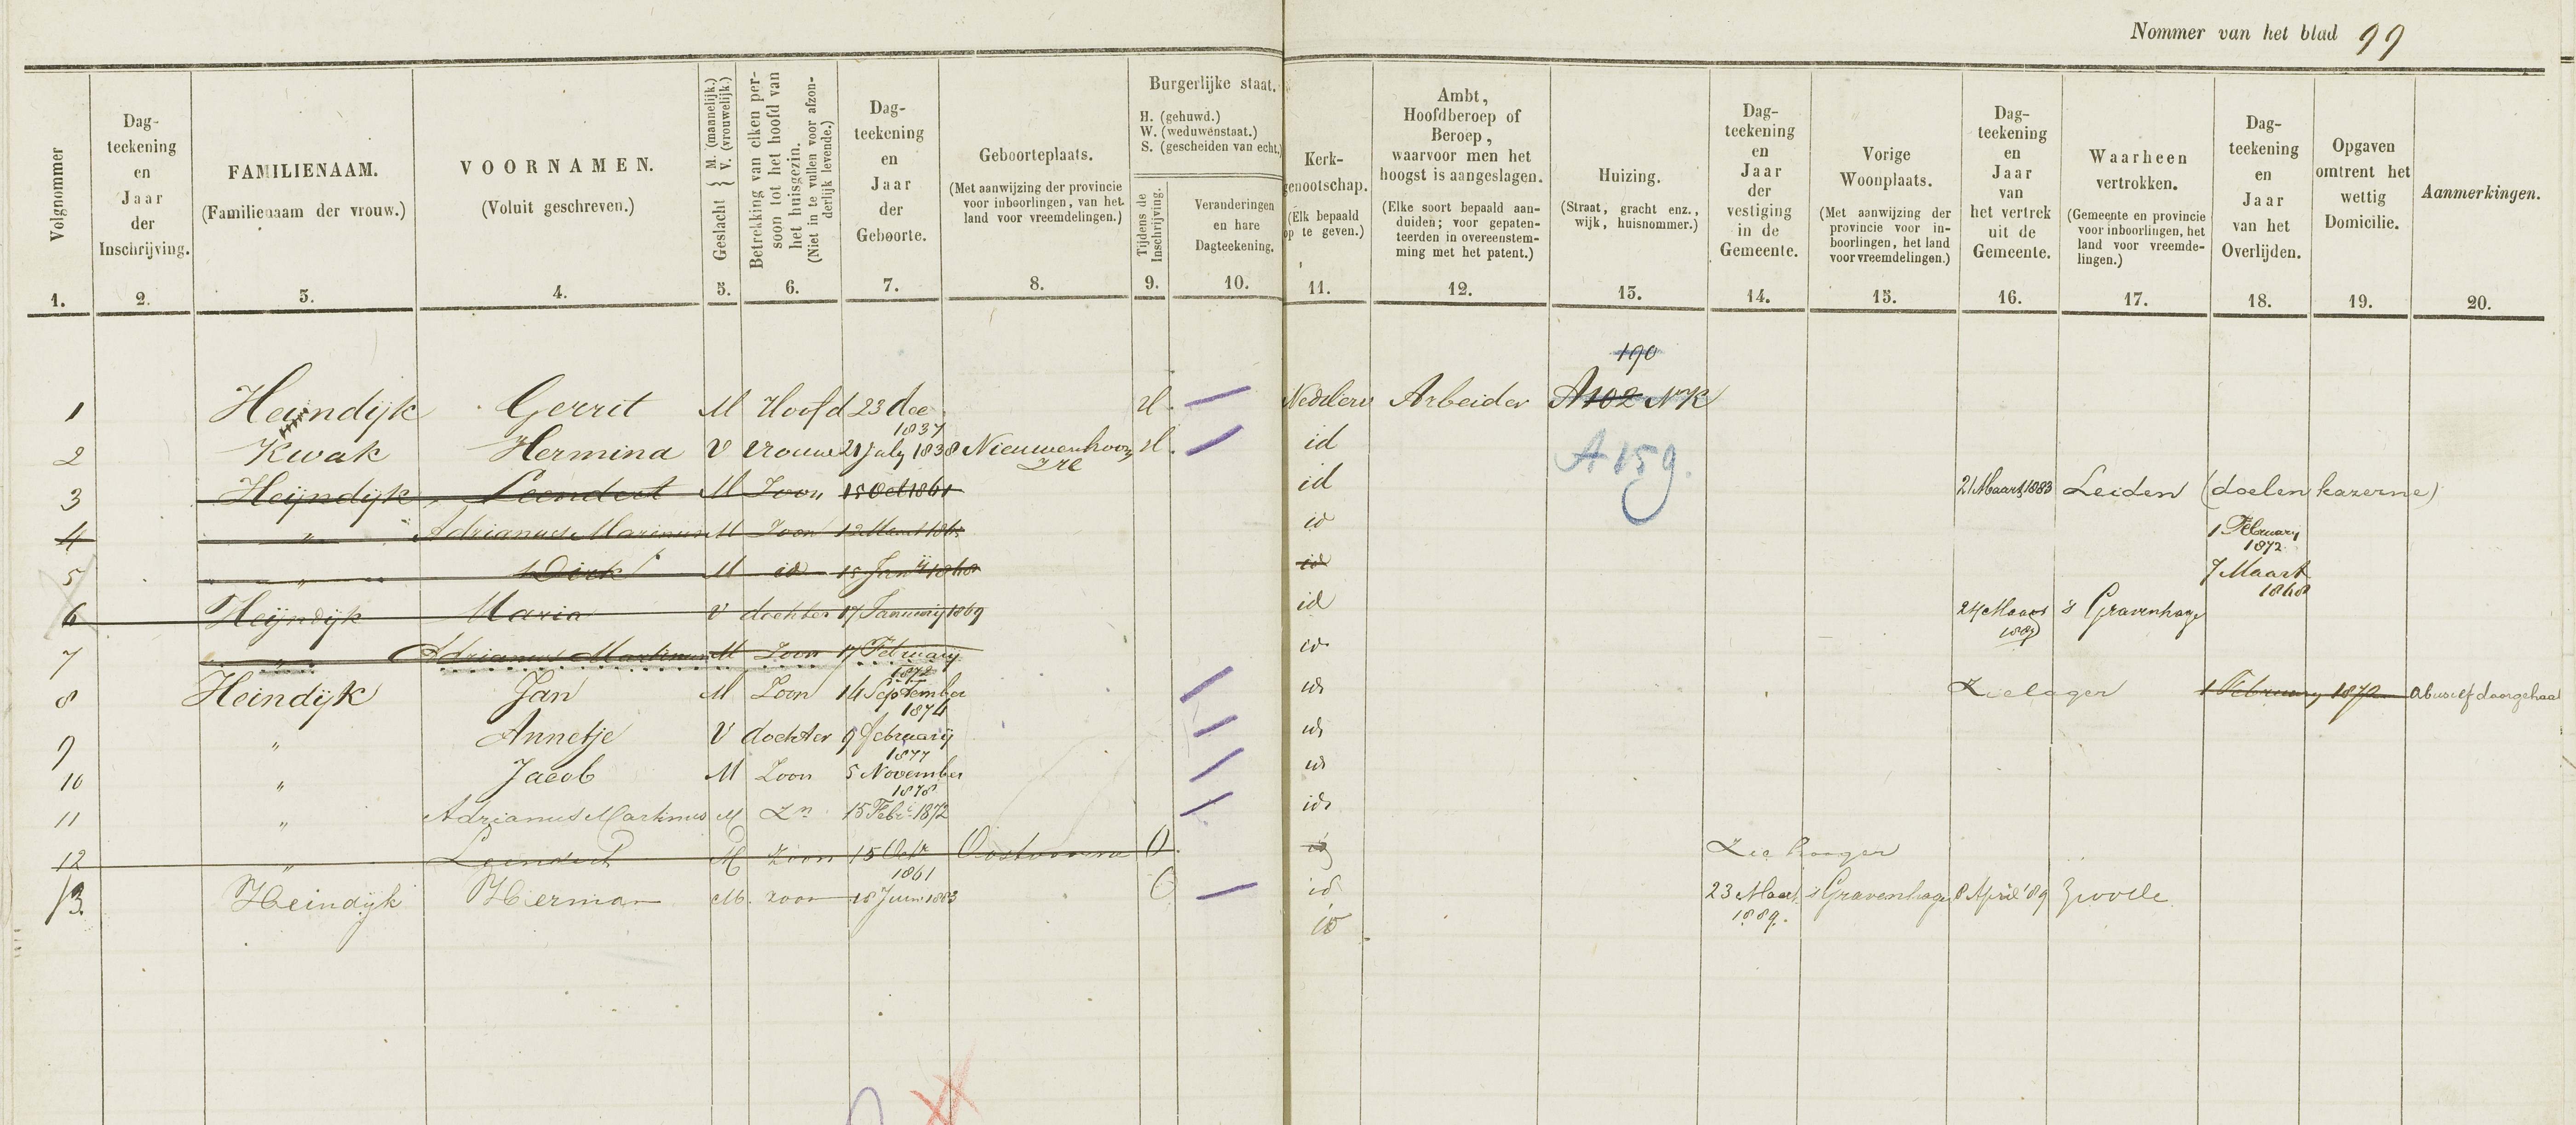 Nommer van het blad 99
Volgnommer
1.
Dag-
teekening
en
Jaar
der
Inschrijving.
2.
FAMILIENAAM.
(Familienaam der vrouw.)
3.
VOORNAMEN.
(Voluit geschreven.)
4.
Geslacht } M. (mannelijk.) V. (vrouwelijk.)
5.
Betrekking van elken per-
soon tot het hoofd van
het huisgezin.
(Niet in te vullen voor afzon-
derlijk levende.)
6.
Dag-
teekening
en
Jaar
der
Geboorte.
7.
Geboorteplaats.
(Met aanwijzing der provincie
voor inboorlingen, van het
land voor vreemdelingen.)
8.
Burgerlijke staat.
H. (gehuwd.)
W. (weduwenstaat.)
S. (gescheiden van echt.)
Tijdens de
Inschrijving.
9.
Veranderingen
en hare
Dagteekening.
10.
Kerk-
genootschap.
(Elk bepaald
op te geven.)
11.
Ambt,
Hoofdberoep of
Beroep,
waarvoor men het
hoogst is aangeslagen.
(Elke soort bepaald aan-
duiden; voor gepaten-
teerden in overeenstem-
ming met het patent.)
12.
Huizing.
(Straat, gracht enz.,
wijk, huisnommer.)
13.
Dag-
teekening
en
Jaar
der
vestiging
in de
Gemeente.
14.
Vorige
Woonplaats.
(Met aanwijzing der
provincie voor in-
boorlingen, het land
voor vreemdelingen.)
15.
Dag-
teekening
en
Jaar
van
het vertrek
uit de
Gemeente.
16.
Waarheen
vertrokken.
(Gemeente en provincie
voor inboorlingen, het
land voor vreemde-
lingen.)
17.
Dag-
teekening
en
Jaar
van het
Overlijden.
18.
Opgaven
omtrent het
wettig
Domicilie.
19.
Aanmerkingen.
20.
190
1 Heindijk Gerrit M Hoofd 23 dec 1837 H. Nederv Arbeider A 102 NK
2 Kwak Hermina V Vrouw 21 July 1838 Nieuwenhoorn ZH H. id A 159.
3 Heijndijk Leendert M Zoon 15 Oct 1861 id 21 Maart 1883 Leiden (doelen kazerne)
4 " Adrianus Marinus M Zoon 12 Maart 1865 id 1 February 1872
5 " Dirk M id 15 Jany 1868 id 7 Maart 1868
6 Heijndijk Maria V dochter 17 January 1869 id 24 Maart 1889 's Gravenhage
7 " Adrianus Martinus M Zoon 17 February 1872 id
8 Heindijk Jan M Zoon 14 September 1874 id Zie lager 1 February 1872 abusief doorgehaal
9 " Annetje V dochter 9 februarij 1877 id
10 " Jacob M Zoon 5 November 1878 id
11 " Adrianus Martinus M Zn 15 Febr. 1872 id
12 " Leendert M Zoon 15 Octr 1861 Oostvoorne O. id Zie hooger
13. Heindijk Herman M. zoon 18 Juni 1883 O id 23 Maart 1889. 's Gravenhage 8 April '89 Zwolle
id